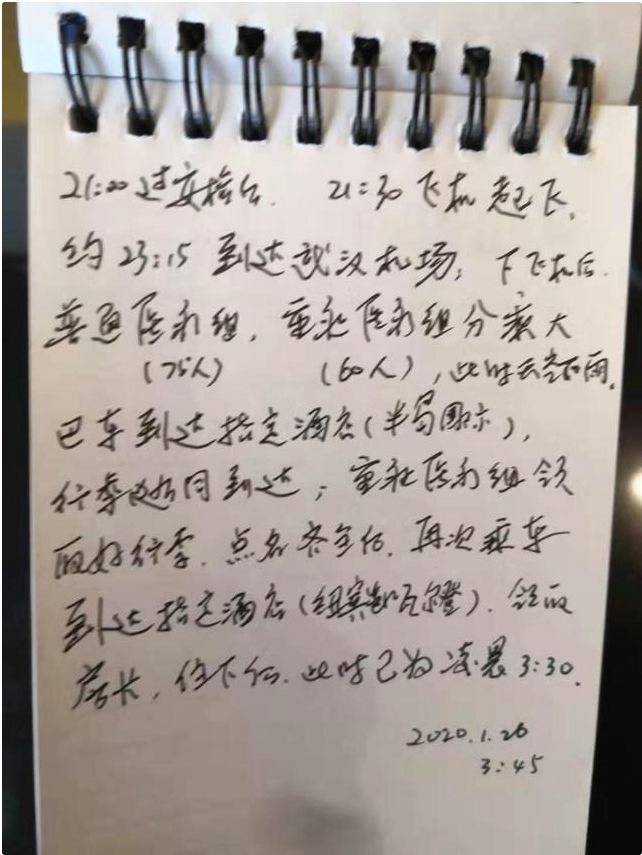 21:00过安检台. 21:30飞机起飞,
约23:15到达武汉机场; 下飞机后.
普通医疗组, 重症医疗组分乘大
(75人) (60人), 此时天空下雨.
巴车到达指定酒店(半岛国际),
行李随同到达; 重症医疗组领
取好行李. 点名齐全后, 再次乘车
到达指定酒店(纽宾凯瓦尔登). 领取
房卡, 住下后. 此时已为凌晨3:30.
2020.1.26
3:45